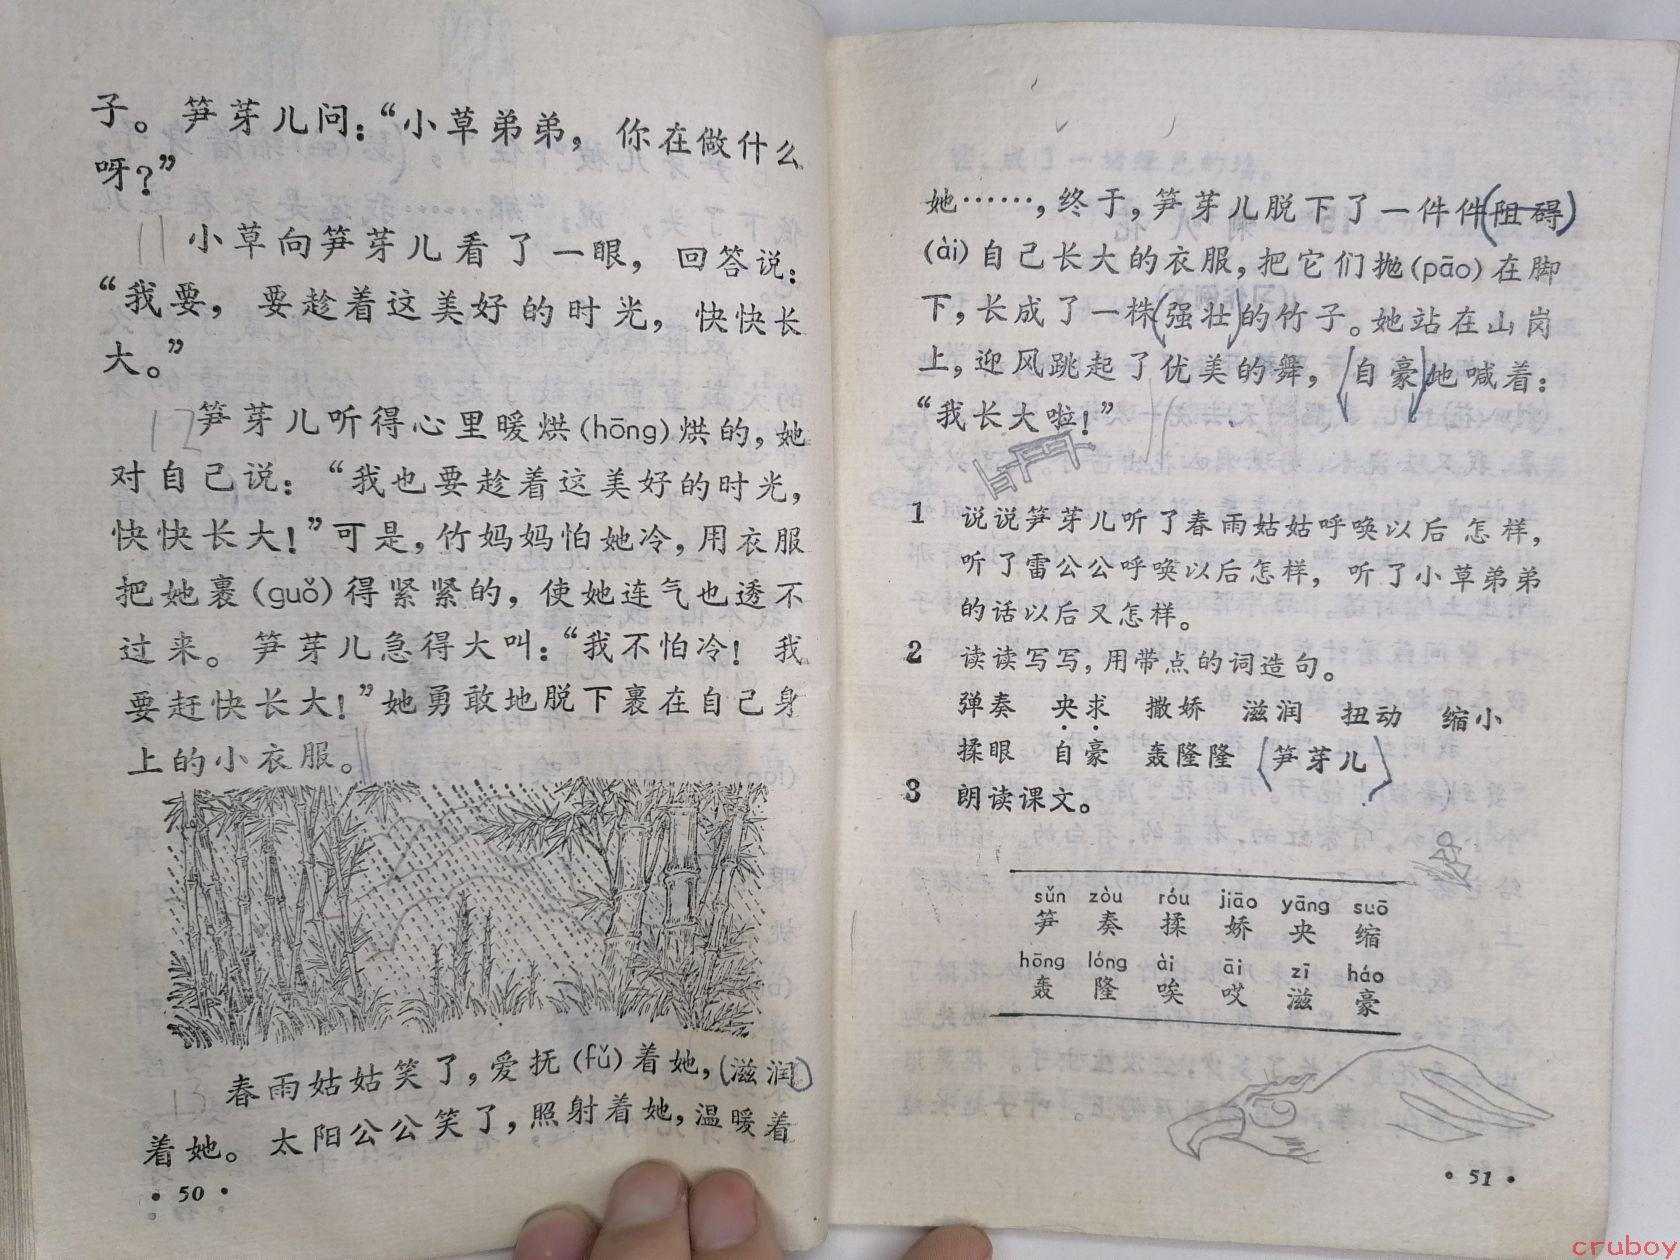 子。笋芽儿问：“小草弟弟，你在做什么
呀？”
11 小草向笋芽儿看了一眼，回答说：
“我要，要趁着这美好的时光，快快长
大。”
12 笋芽儿听得心里暖烘(hōng)烘的，她
对自己说：“我也要趁着这美好的时光，
快快长大！”可是，竹妈妈怕她冷，用衣服
把她裹(guǒ)得紧紧的，使她连气也透不
过来。笋芽儿急得大叫：“我不怕冷！我
要赶快长大！”她勇敢地脱下裹在自己身
上的小衣服。
13 春雨姑姑笑了，爱抚(fǔ)着她，(滋润)
着她。太阳公公笑了，照射着她，温暖着
·50·
她……，终于，笋芽儿脱下了一件件(阻碍)
(ài)自己长大的衣服，把它们抛(pāo)在脚
下，长成了一株(强壮)的竹子。她站在山岗
上，迎风跳起了优美的舞，(自豪)地喊着：
“我长大啦！”
1 说说笋芽儿听了春雨姑姑呼唤以后怎样，
听了雷公公呼唤以后怎样，听了小草弟弟
的话以后又怎样。
2 读读写写，用带点的词造句。
弹奏 央求 撒娇 滋润 扭动 缩小
揉眼 自豪 轰隆隆 (笋芽儿)
3 朗读课文。
sǔn zòu róu jiāo yāng suō
笋 奏 揉 娇 央 缩
hōng lóng ài āi zī háo
轰 隆 唉 哎 滋 豪
·51·
cruboy